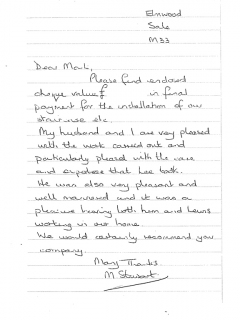 Elmwood
Sale
M33
Dear Mark,
Please find enclosed
cheque value £ in final
payment for the installation of our
staircase etc.
My husband and I are very pleased
with the work carried out and
particularly pleased with the care
and expertise that Lee took.
He was also very pleasant and
well mannered and it was a
pleasure having both him and Lewis
working in our home.
We would certainly recommend your
company.
Many Thanks
M Stewart